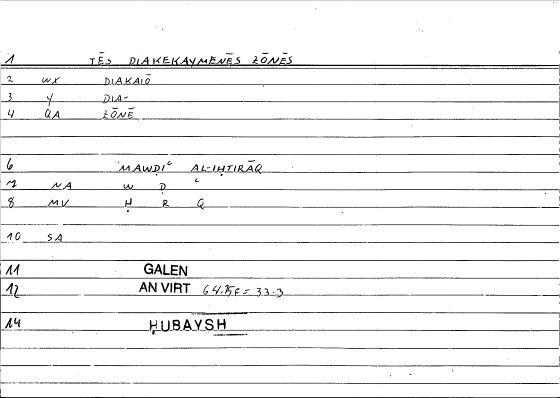 1 TĒS DIAKEKAYMENĒS ZŌNĒS
2 WX DIAKAIŌ
3 Y DIA-
4 QA ZŌNĒ
6 MAWḌIʿ AL-IḤTIRĀQ
7 NA W Ḍ ʿ
8 MV Ḥ R Q
10 SA
11 GALEN
12 AN VIRT = 33.3
14 ḤUBAYSH